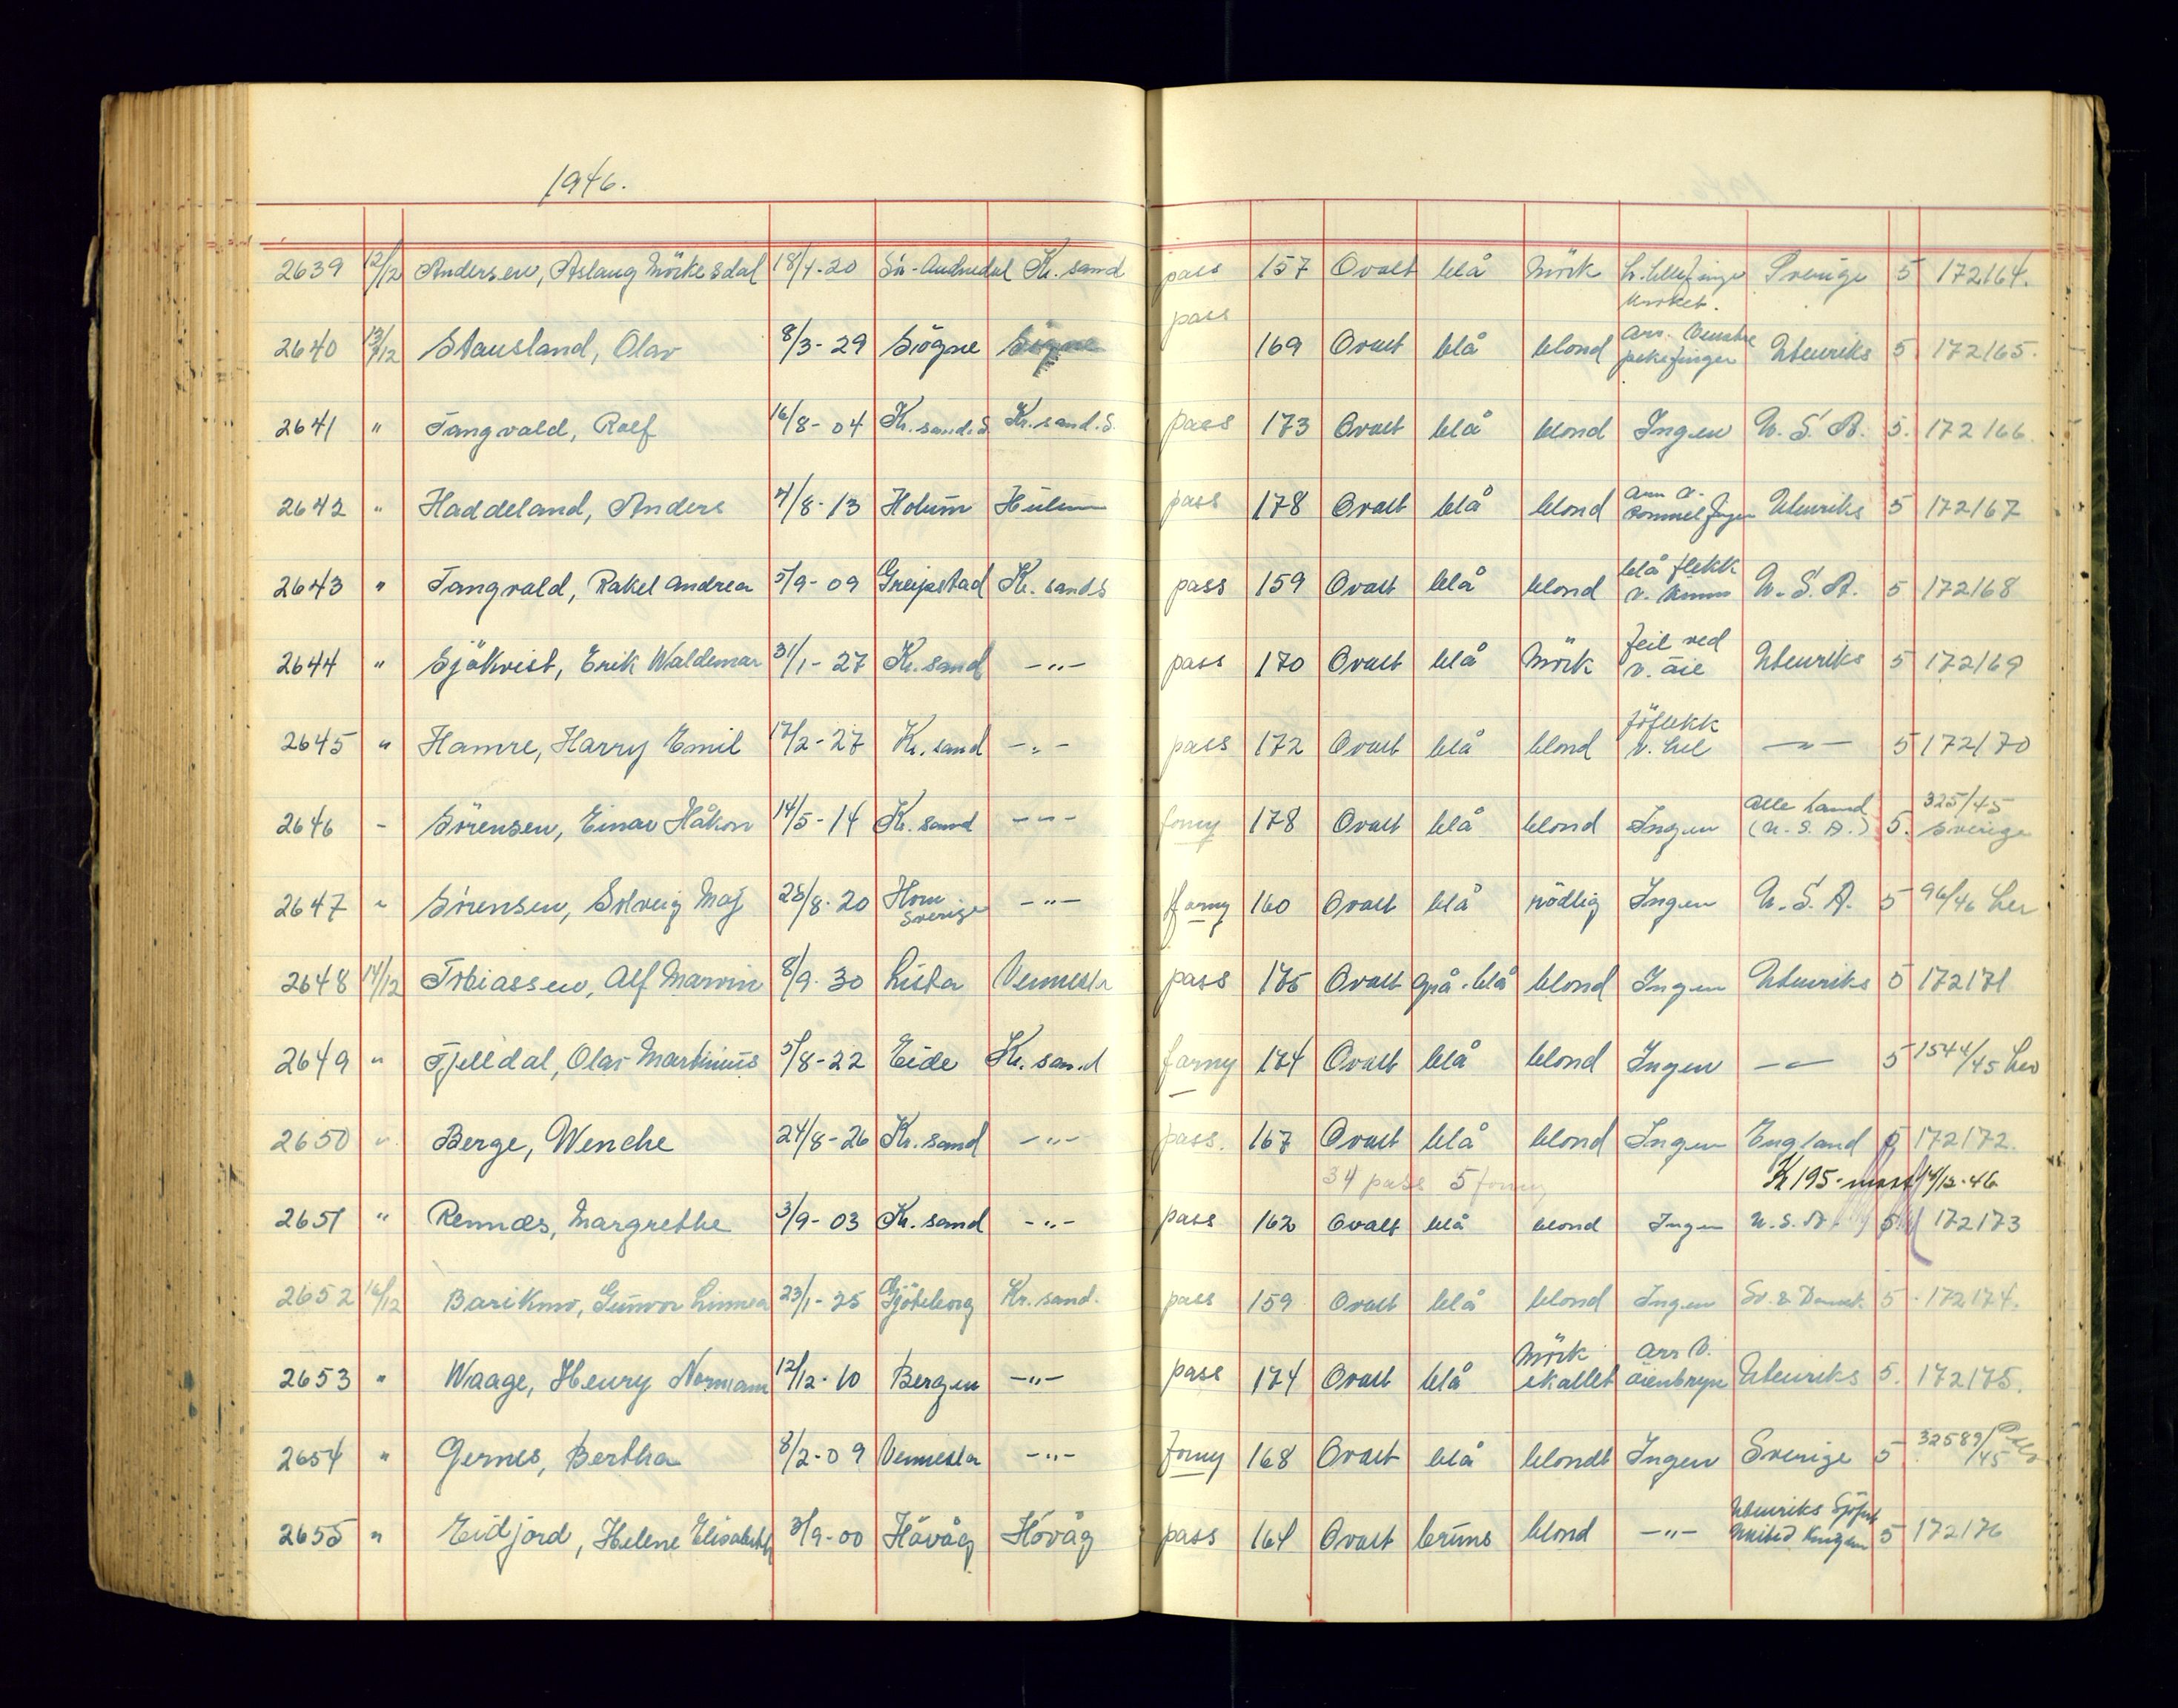 1946.
2639 12/12 Andersen, Aslaug Mörkesdal 18/4-20 Sör-Audnedal Kr. sand pass 157 Ovalt blå Mörk Sverige 5 172164.
pass
2640 13/12 Stausland, Olav 8/3-29 Sögne Sögne 169 Ovalt blå blond arr. Venstre pekefinger Utenriks 5 172165.
2641 " Tangvald, Rolf 16/8-04 Kr.sand.S Kr.sand.S. pass 173 Ovalt blå blond Ingen U.S.A. 5. 172166.
2642 " Haddeland, Anders 4/8-13 Holum Hulum pass 178 Ovalt blå blond Utenriks 5 172167
2643 " Tangvald, Rakel Andrea 5/9-09 Greipstad Kr. sand S pass 159 Ovalt blå blond blå flekk v. U.S.A. 5 172168
2644 " Sjökvist, Erik Waldemar 31/1-27 Kr.sand -"- pass 170 Ovalt blå Mörk feil ved v. öie Utenriks 5 172169
2645 " Hamre, Harry Emil 17/2-27 Kr.sand -"- pass 172 Ovalt blå blond föflekk v. -"- 5 172170
2646 - Sörensen, Einar Håkon 14/5-14 Kr.sand -"- forny 178 Ovalt blå blond Ingen alle land (U.S.A.) 5. 325/45 Sverige
2647 " Sörensen, Solveig Maj 28/8-20 Hom Sverige -"- forny 160 Ovalt blå rödlig Ingen U.S.A. 5 96/46 her
2648 14/12 Tobiassen, Alf Marvin 8/9-30 Lista Vennesla pass 175 Ovalt grå-blå blond Ingen Utenriks 5 172171
2649 " Fjelldal, Olav Martinius 5/8-22 Eide Kr. sand forny 174 Ovalt blå blond Ingen -"- 5 1544/45 her
2650 " Berge, Wenche 24/8-26 Kr.sand -"- pass. 167 Ovalt blå blond Ingen England 5 172172.
34 pass 5 forny Kr 195.- 14/12-46
2651 " Rennæs, Margrethe 3/9-03 Kr.sand -"- pass 162 Ovalt blå blond Ingen U.S.A. 5 172173
2652 16/12 Barikmo, Gunvor Linnea 23/1-25 Gjöteborg Kr.sand. pass 159 Ovalt blå blond Ingen Sv. & Danm. 5 172174.
2653 " Waage, Henry Normann 12/12-10 Bergen -"- pass 174 Ovalt blå Mörk skallet arr v. öienbryn Utenriks 5. 172175.
2654 " Gernes, Bertha 8/2-09 Vennesla -"- forny 168 Ovalt blå blondt Ingen Sverige 5 32589/45
2655 " Eidjord, Helene Elisabeth 3/9-00 Hövåg Hövåg pass 164 Ovalt bruns blond -"- Utenriks United 5 172176